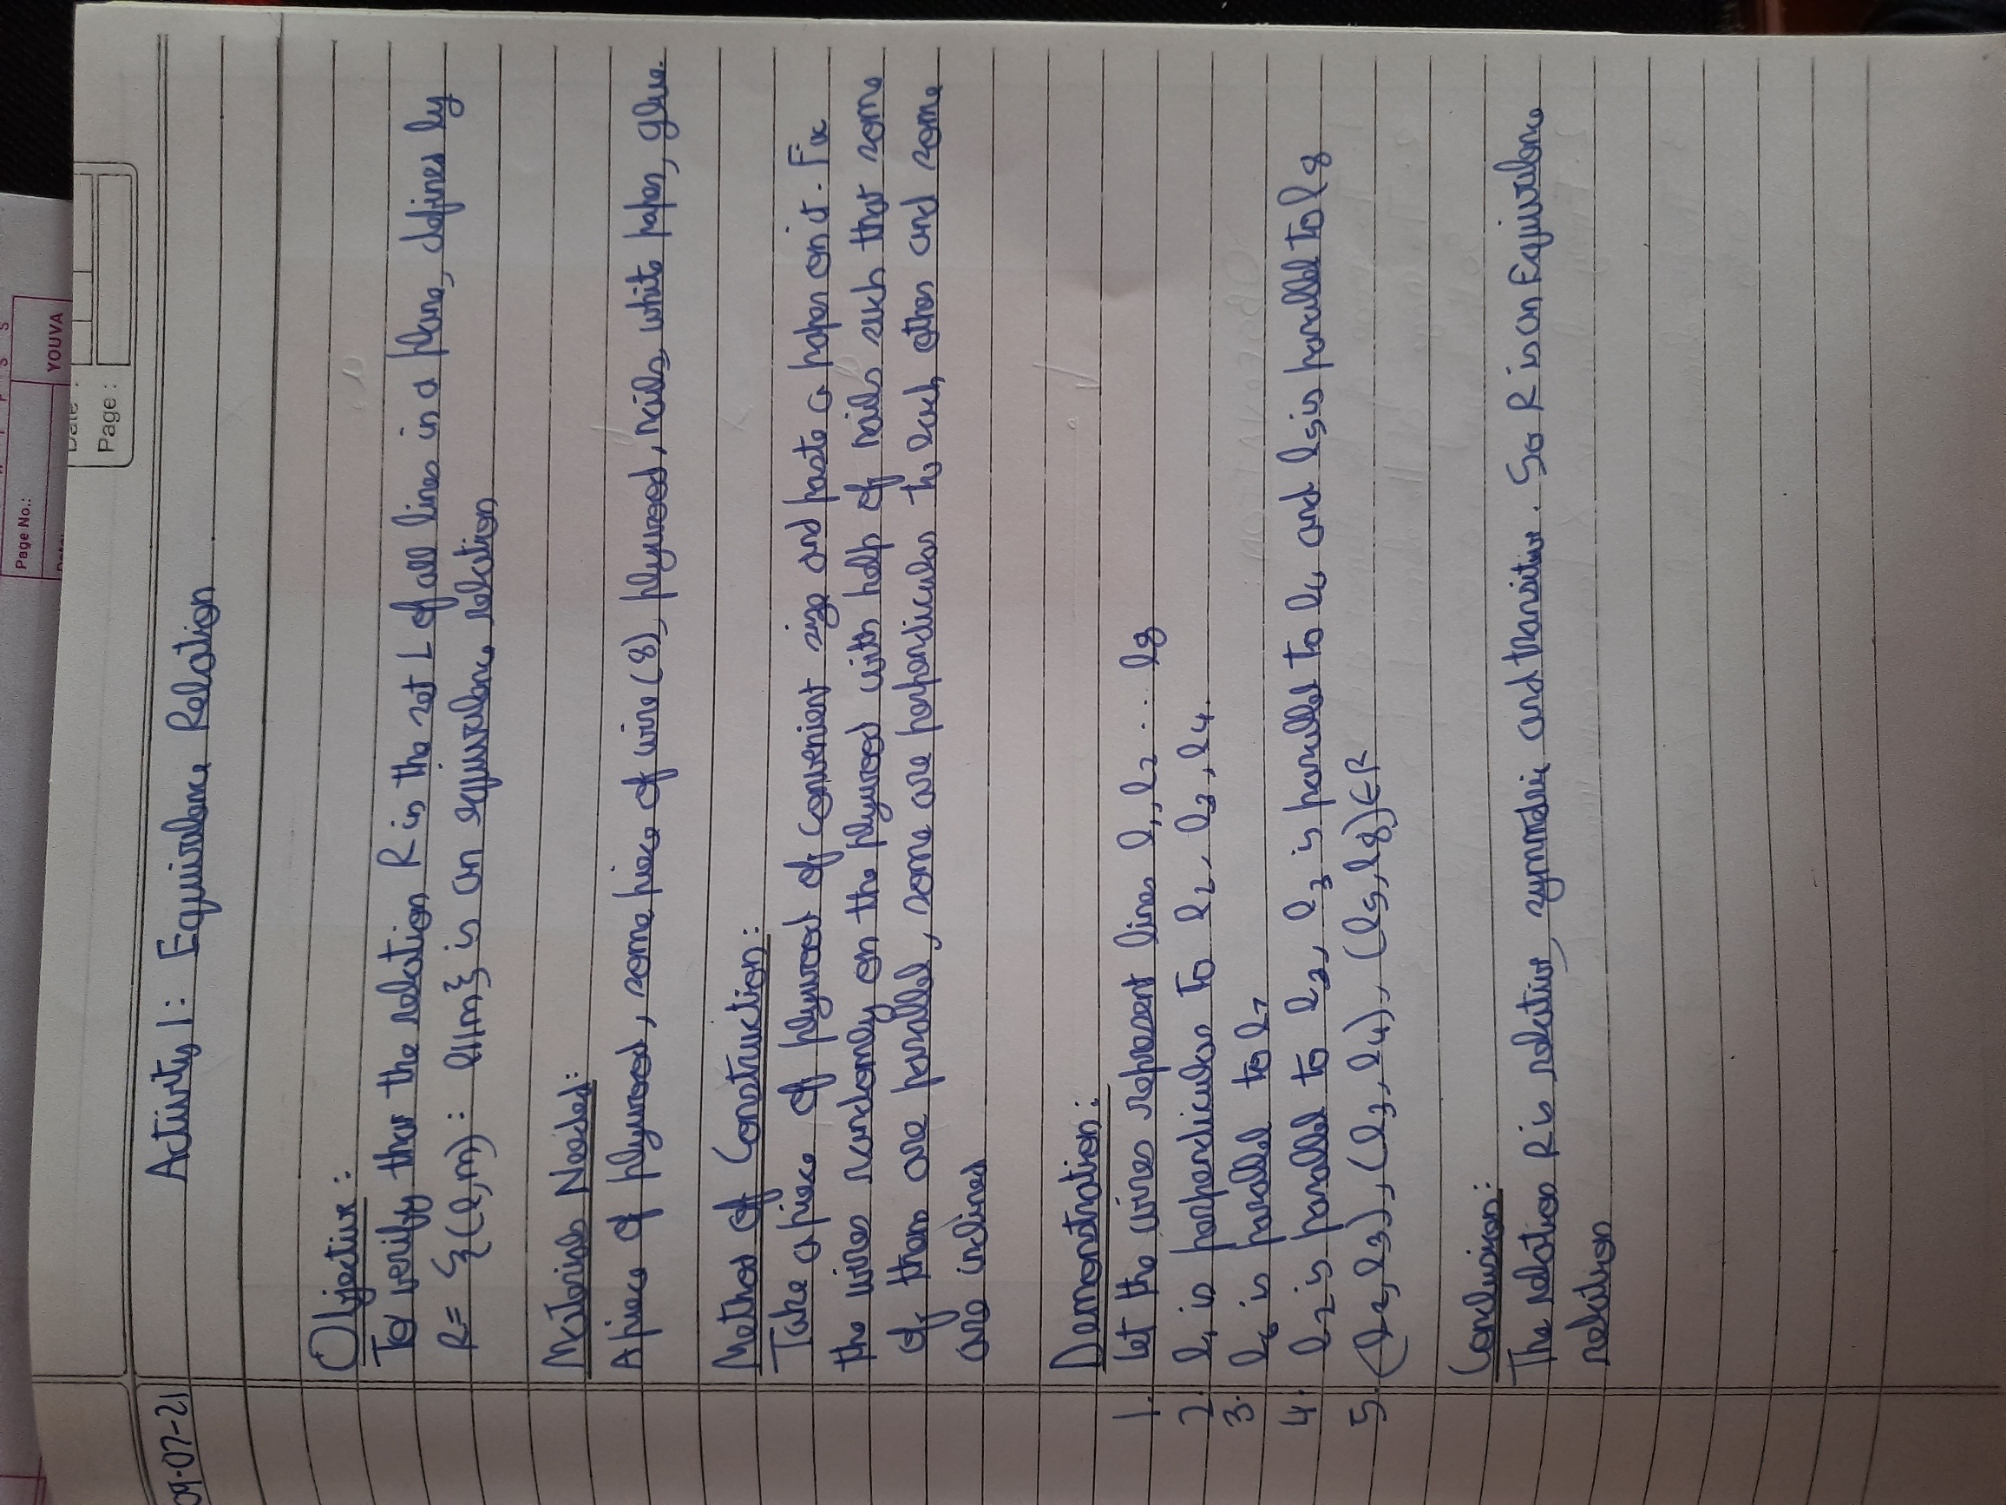 Page No.:
YOUVA
Date :
Page :
09-07-21
Activity 1: Equivalence Relation
Objective:
To verify that the relation R in the set L of all lines in a plane, defines by
R= {(l,m): l||m} is an equivalence relation
Materials Needed:
A piece of plywood, some piece of wire (8), plywood, nails, white paper, glue.
Method of Construction:
Take a piece of plywood of convenient size and paste a paper on it. Fix
the wires randomly on the plywood with help of nails such that some
of them are parallel, some are perpendicular to each other and some
are inclined
Demonstration:
1. Let the wires represent lines l₁, l₂ ... l₈
2. l₁ is perpendicular to l₂, l₃, l₄.
3. l₆ is parallel to l₇
4. l₂ is parallel to l₃, l₃ is parallel to l₄ and l₅ is parallel to l₈
5. (l₂, l₃), (l₃, l₄), (l₅, l₈) ∈ R
Conclusion:
The relation R is relative, symmetric and transitive. So R is an Equivalence
relation